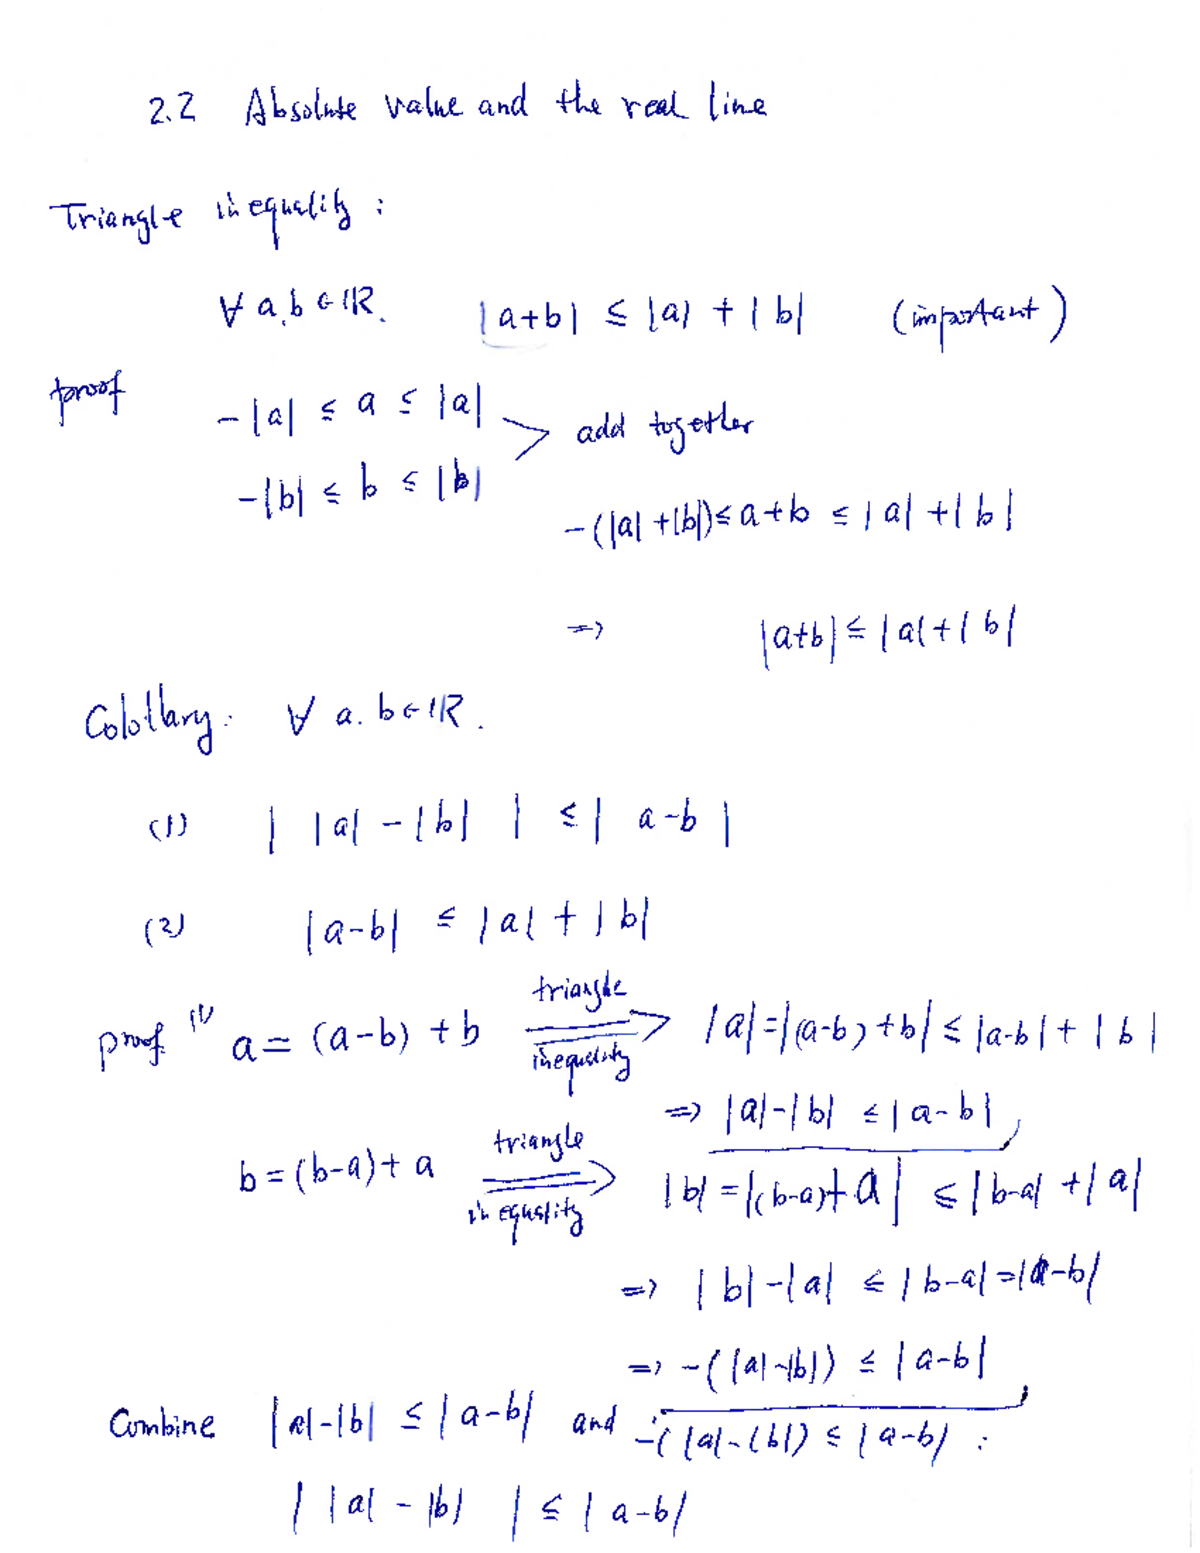 2.2 Absolute value and the real line
Triangle inequality :
∀ a, b ∈ ℝ. |a+b| ≤ |a| + |b| (important)
proof
-|a| ≤ a ≤ |a|
-|b| ≤ b ≤ |b|
> add together
-(|a|+|b|) ≤ a+b ≤ |a|+|b|
=> |a+b| ≤ |a|+|b|
Colollary: ∀ a. b ∈ ℝ.
(1) | |a| - |b| | ≤ | a-b |
(2) |a-b| ≤ |a| + |b|
proof (1) a = (a-b) + b triangle inequality => |a| = |(a-b)+b| ≤ |a-b| + |b|
=> |a|-|b| ≤ |a-b|,
b = (b-a) + a triangle inequality => |b| = |(b-a)+a| ≤ |b-a| + |a|
=> |b|-|a| ≤ |b-a| = |a-b|
=> -(|a|-|b|) ≤ |a-b|
Combine |a|-|b| ≤ |a-b| and -(|a|-|b|) ≤ |a-b| :
| |a| - |b| | ≤ |a-b|